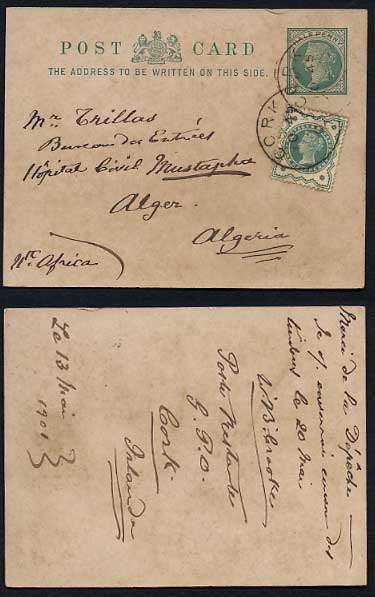 POST CARD
THE ADDRESS TO BE WRITTEN ON THIS SIDE.
HALFPENNY
CORK
Mr Trillas
Bureau des Entrées
Hôpital Civil Mustapha
Alger
Algeria
Nth Africa
Merci de la Dépêche
Je v. enverrai encore des
timbres le 20 Mai
Poste Restante
G.P.O.
Cork
Irlande
Le 13 Mai
1901